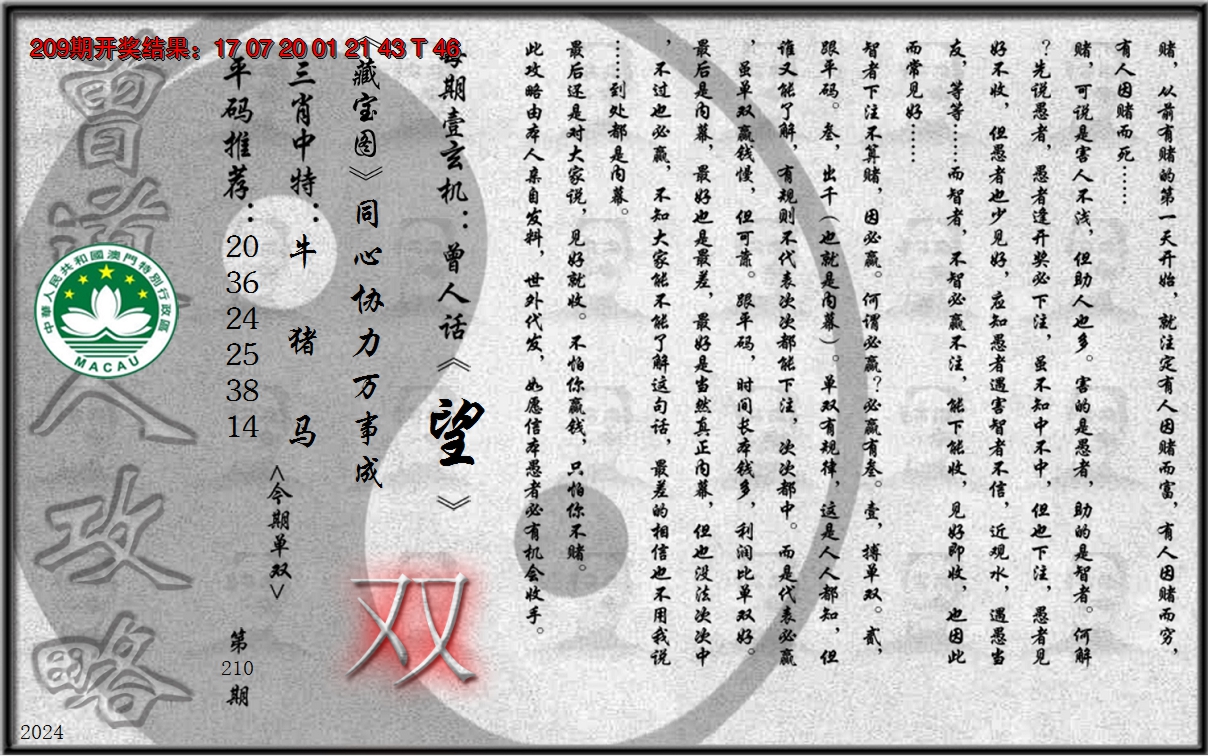 209期开奖结果：17 07 20 01 21 43 T 46
赌，从前有赌的第一天开始，就注定有人因赌而富，有人因赌而穷，
有人因赌而死……
赌，可说是害人不浅，但助人也多。害的是愚者，助的是智者。何解
？先说愚者，愚者逢开奖必下注，虽不知中不中，但也下注，愚者见
好不收，但愚者也少见好，应知愚者遇害智者不信，近观水，遇愚当
友，等等……而智者，不智必赢不注，能下能收，见好即收，也因此
而常见好……
智者下注不算赌，因必赢。何谓必赢？必赢有叁。壹，搏单双。贰，
跟平码。叁，出千（也就是内幕）。单双有规律，这是人人都知，但
谁又能了解，有规则不代表次次都能下注，次次都中。而是代表必赢
，虽单双赢钱慢，但可靠。跟平码，时间长本钱多，利润比单双好。
最后是内幕，最好也是最差，最好是当然真正内幕，但也没法次次中
，不过也必赢，不知大家能不能了解这句话，最差的相信也不用我说
……到处都是内幕。
最后还是对大家说，见好就收。不怕你赢钱，只怕你不赌。
此攻略由本人亲自发料，世外代发，如愿信本愚者必有机会收手。
每期壹玄机：曾人话《望》
《藏宝图》同心协力万事成
双
三肖中特：牛 猪 马
<今期单双>
平码推荐：20 36 24 25 38 14
第210期
曾道人攻略
中華人民共和國澳門特別行政區
MACAU
2024